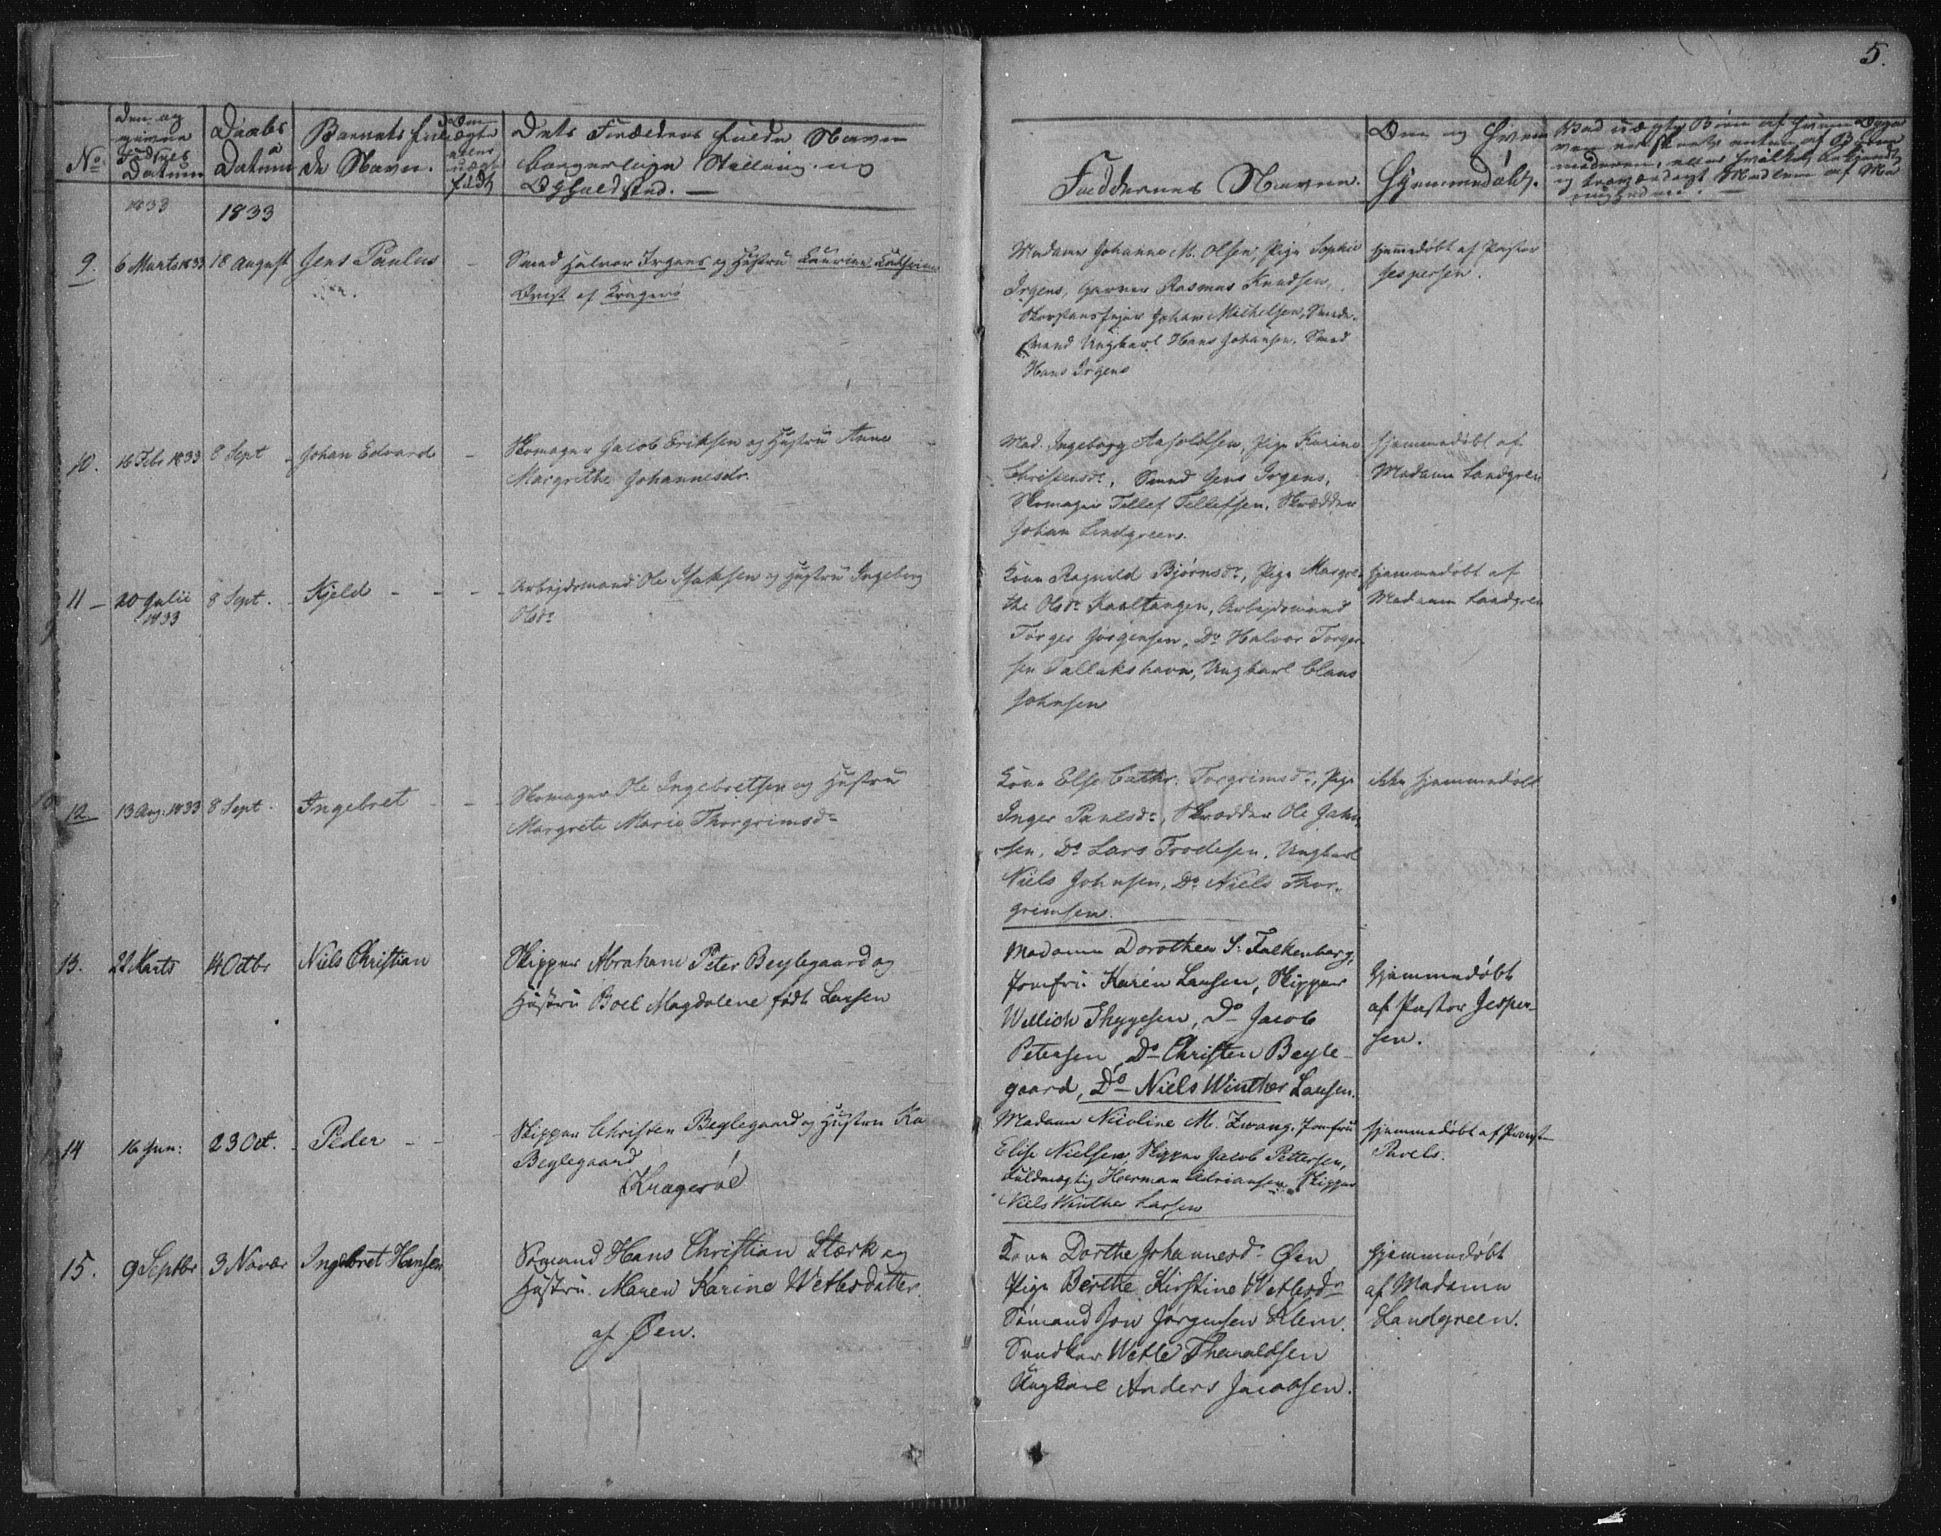 5.
No.
Daabs
Datum
Barnets ful-
de Navn.
Dets Forældres fulde Navne
borgerlige Stilling og
Opholdsted. —
Faddernes Navne.
Hjemmedøbt.
1833
1833
9. 6 Marts 1833 18 August Jens Paulus - Smed Halvor Irgens og Hustru Laurine Cathrine
Qvist af Kragerø
Madame Johanne M. Olsen, Pige Sophie
Irgens, Garver Rasmus Knudsen,
Skorstensfejer Johan Mathelsen, Smede-
svend Ungkarl Hans Johansen. Smed
Hans Irgens
hjemmedøbt af Pastor
Jespersen.
10. 16 Febr 1833 8 Sept - Johan Edvard - Skomager Jacob Eriksen og Hustru Anne
Margrethe Johannesdr.
Mad. Ingeborg Aasoldsen, Pige Karine
Christensdr, Smed Jens Irgens,
Skomager Tellef Tellefsen, Skrædder
Johan Lindgreen.
hjemmedøbt af
Madame Landgreen
11 - 20 Julii 8 Sept. - Kjeld - - - - Arbejdsmand Ole Isaksen og Hustru Ingeborg
1833
Olsdr
Kone Ragnild Bjørnsdr, Pige Margre-
the Olsdr Kaaltangen, Arbejdsmand
Torger Jørgensen, Do Halvor Torger-
sen Tallakshavn, Ungkarl Claus
Johnsen
hjemmedøbt af
Madame Landgreen
12. 13 Aug. 1833 8 Sept. - Ingebret - - - Skomager Ole Ingebretsen og Hustru
Margrete Marie Thorgrimsdr
Kone Else Cathr. Torgrimsdr, Pige
Inger Paulsdr, Skrædder Ole Jahn-
sen, Do Lars Frodesen, Ungkarl
Niels Johnsen, Do Niels Thor-
grimsen.
ikke hjemmedøbt
13. 22 Marts 14 Octbr Niels Christian Skipper Abraham Peter Beylegaard og
Hustru Boel Magdalene født Larsen
Madame Dorothea S. Falkenberg,
Jomfru Karen Larsen, Skipper
Wellich Thygesen, Do Jacob
Petersen, Do Christen Beyle-
gaard, Do Niels Winther Larsen.
hjemmedøbt
af Pastor Jesper-
sen.
14 16 Jun: 23 Oct. - Peder - - - Skipper Christen Beylegaard og Hustru Ka
Beylegaard
Kragerøe
Madame Nicoline M. Zwang, Jomfru
Elise Nielsen, Skipper Jacob Pettersen,
Fuldmægtig Herman Adriansen, Skipper
Niels Winther Larsen
hjemmedøbt af Provst
Pavels.
15. 9 Septbr 3 Novbr Ingebret Hansen Sømand Hans Christian Stærk og
Hustru Maren Karine Wetlesdatter
af Øen.
Kone Dorthe Johannesdr Øen
Pige Berthe Kirstine Wetlesdr
Sømand Jon Jørgensen Klem.
Snedker Wetle Tharaldsen
Ungkarl Anders Jacobsen.
hjemmedøbt
af Madame
Landgreen.